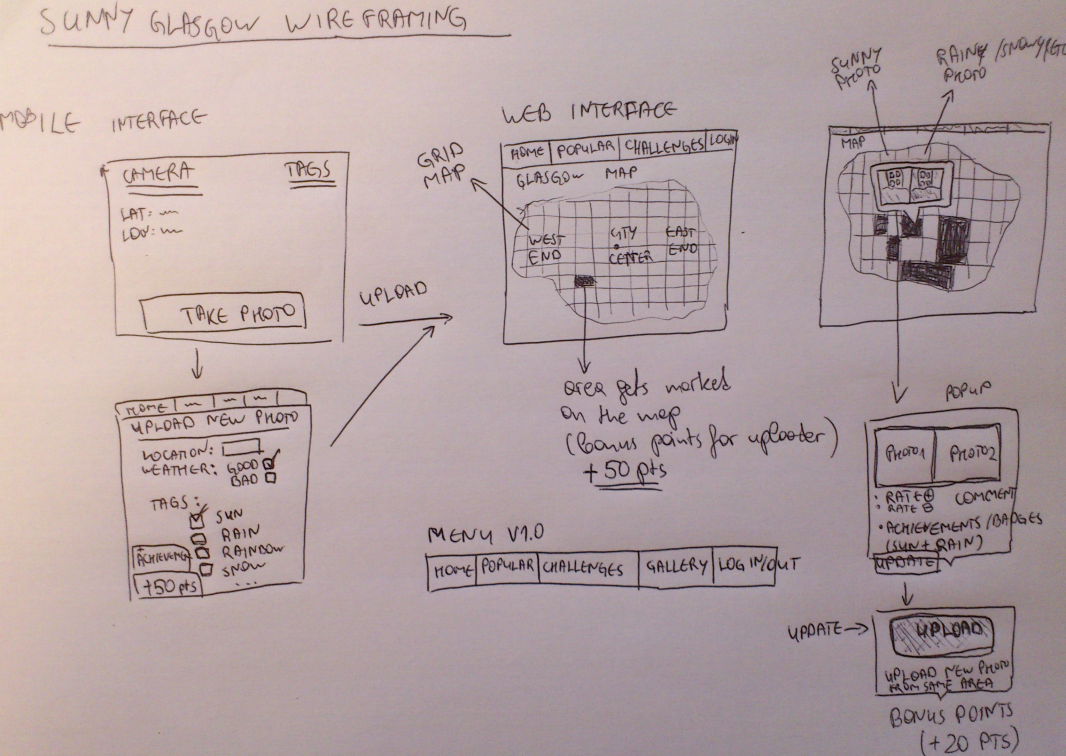 SUNNY GLASGOW WIREFRAMING
MOBILE INTERFACE
CAMERA TAGS
LAT:
LON:
TAKE PHOTO
UPLOAD
HOME
UPLOAD NEW PHOTO
LOCATION:
WEATHER: GOOD
BAD
TAGS:
SUN
RAIN
RAINBOW
SNOW
...
+50 pts
WEB INTERFACE
GRID
MAP
HOME POPULAR CHALLENGES LOGIN
GLASGOW MAP
WEST
END
CITY
CENTER
EAST
END
area gets marked
on the map
(bonus points for uploader)
+50 pts
MENU V1.0
HOME POPULAR CHALLENGES GALLERY LOG IN/OUT
SUNNY
PHOTO
RAINY/SNOWY/ETC
PHOTO
MAP
POPUP
PHOTO1 PHOTO2
: RATE ⊕ COMMENT
: RATE ⊖
• ACHIEVEMENTS/BADGES
(SUN + RAIN)
UPDATE
UPDATE →
UPLOAD
UPLOAD NEW PHOTO
FROM SAME AREA
BONUS POINTS
(+20 PTS)